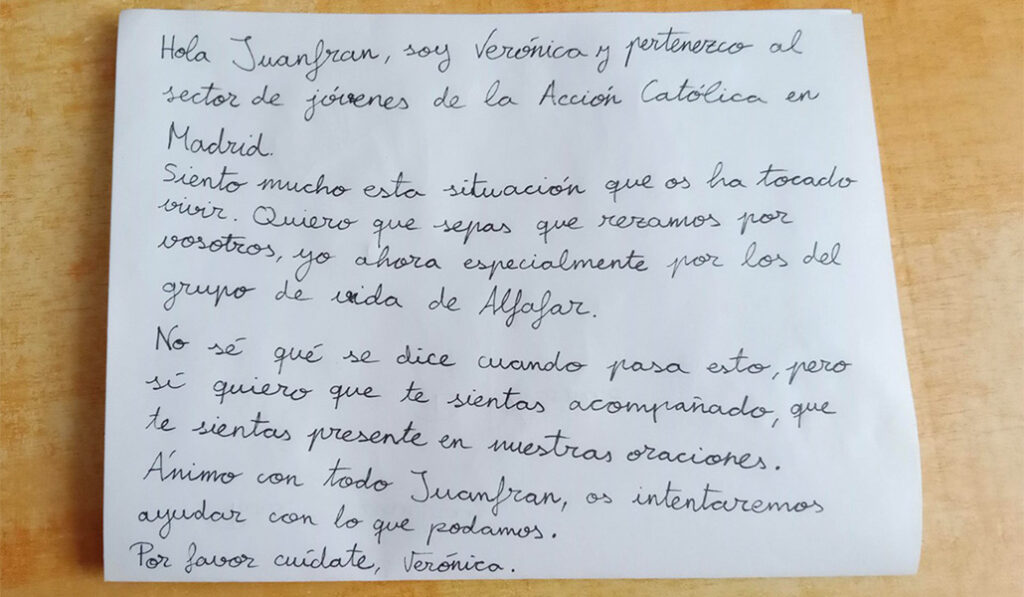 Hola Juanfran, soy Verónica y pertenezco al
sector de jóvenes de la Acción Católica en
Madrid.
Siento mucho esta situación que os ha tocado
vivir. Quiero que sepas que rezamos por
vosotros, yo ahora especialmente por los del
grupo de vida de Alfafar.
No sé qué se dice cuando pasa esto, pero
sí quiero que te sientas acompañado, que
te sientas presente en nuestras oraciones.
Ánimo con todo Juanfran, os intentaremos
ayudar con lo que podamos.
Por favor cuídate, Verónica.